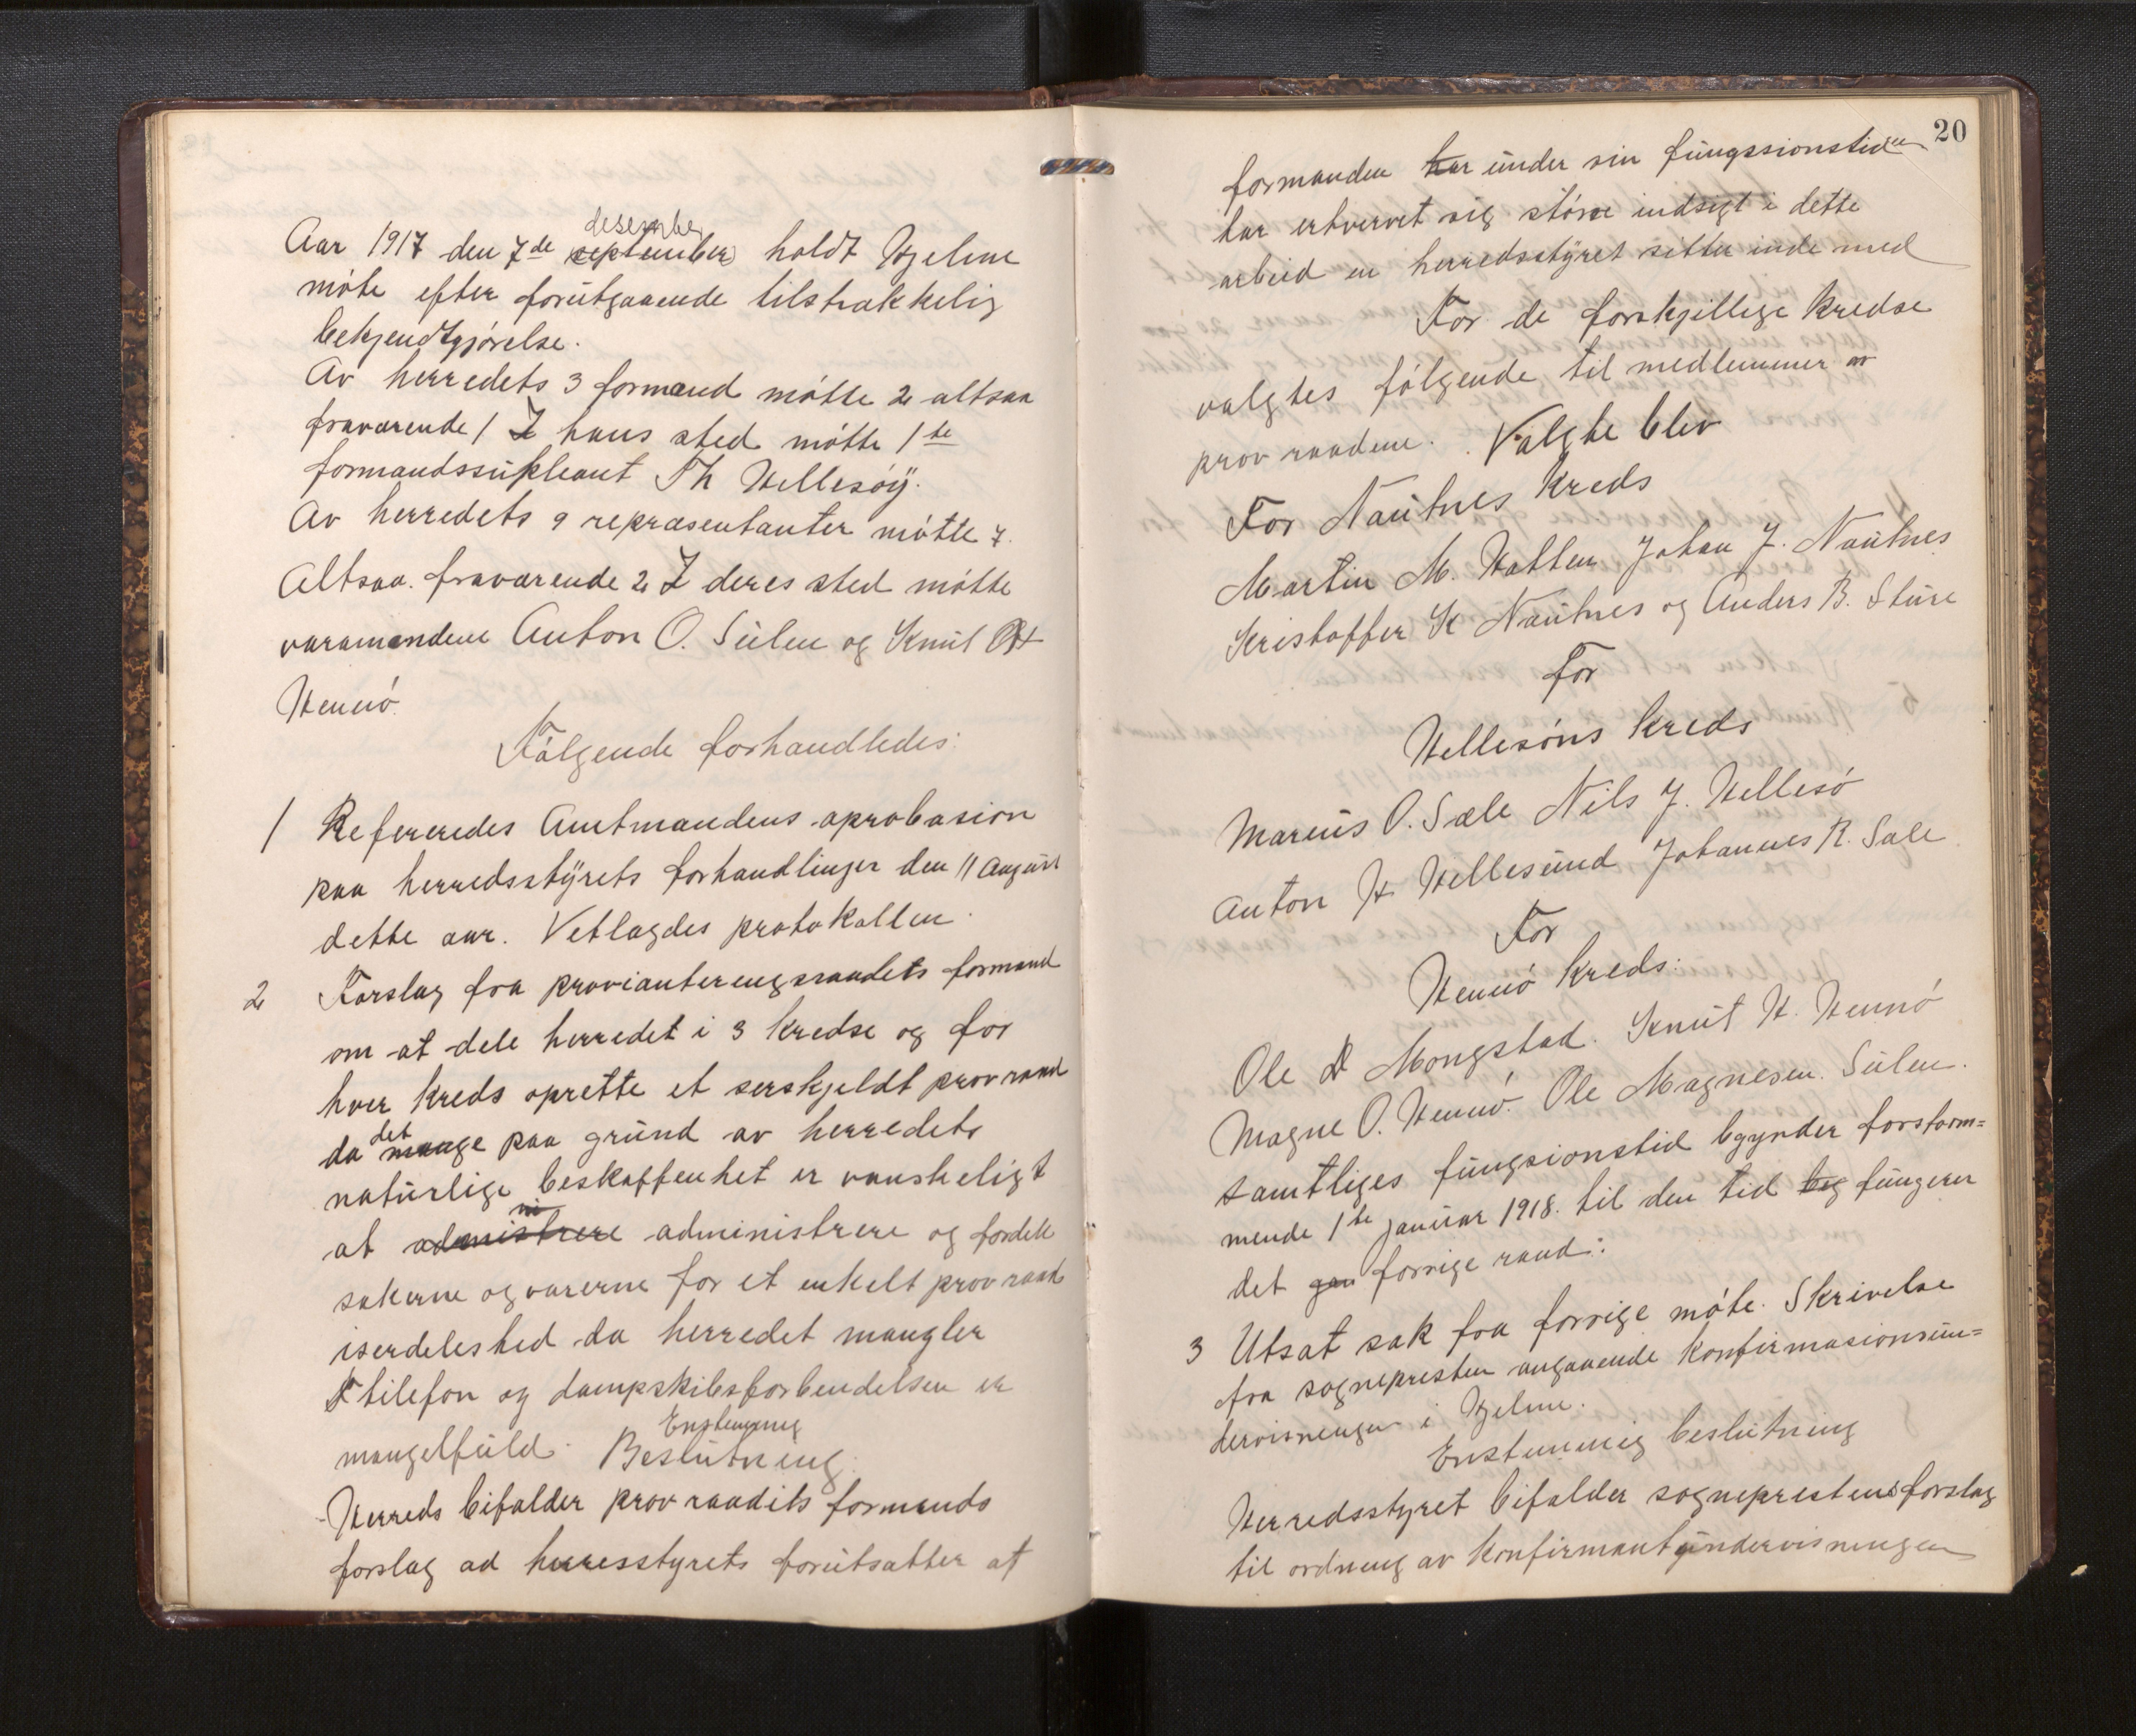 desember
Aar 1917 den 7de september holdt Hjelme
möte efter forutgaaende tilstrakkelig
bekjendtgjörelse.
Av herredets 3 formænd mötte 2 altsaa
fraværende 1 I hans sted mötte 1te
formandssupleant Th Hellesöÿ.
Av herredets 9 repræsentanter mötte 7.
Altsaa. fraværende 2 I deres sted mötte
varamændene Anton O. Sulen og Knut H
Hennö.
Fölgende forhandledes:
1 Refereredes Amtmandens aprobasion
paa herredsstÿrets forhandlinger den 11 August
dette aar. Vetlagdes protokollen.
2 Forslag fra provianteringsraadets formand
om at dele herredet i 3 kredse og for
hver kreds oprette et serskjeldt prov raad
det
da mange paa grund av herredets
naturlige beskaffenhet er vanskeligt
ni
at admistrere administrere og fordele
sakerne og varerne for et enkelt prov raad
iserdeleshed da herredet mangler
tilefon og dampskibsforbendelsen er
mangelfuld. Enstemmig
Beslutning.
Herreds bifalder prov raadets formands
forslag ad herresstyrets forutsætter at
20
formanden har under sin fungssionstiden
har erhvervet sig större indsigt i dette
arbeid en herredsstÿret sitter inde med
For de forskjellige kredse
valgtes fölgende til medlemmer av
prov raadene. Valgte blev
For Nautnes Kreds
Martin M. Hatten Johan J. Nautnes
Kristoffer K Nautnes og Anders B. Sture
For
Hellesöns Kreds
Marius O. Sæle Nils J. Hellesö
Anton H Hellesund Johannes R. Sæle
For
Hennö Kreds:
Ole D Mongstad. Knut H. Hennö
Magne O. Hennö. Ole Magnesen. Sulen.
samtliges fungsionstid bgynder forstkom=
mende 1te januar 1918. til den tid beg fungerer
det gan forrige raad:
3 Utsat sak fra forrige möte. Skrivelse
fra sognepresten angaaende Konfirmasionsun=
dervisningen i Hjelme.
Enstemmig beslutning
Herredsstyret bifalder sogneprestens forslag
til ordning av Konfirmantundervisningen